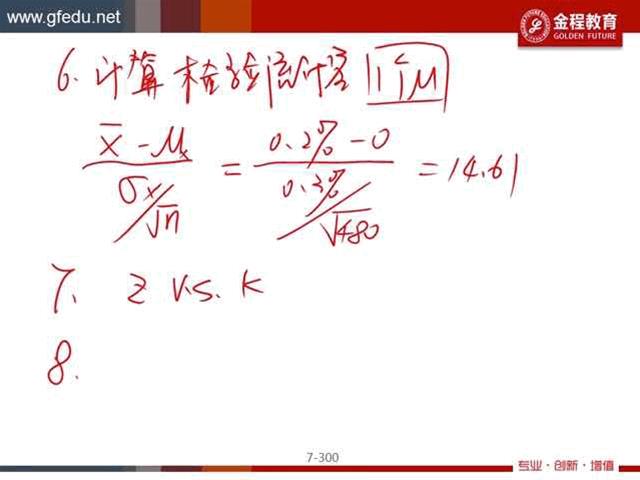 www.gfedu.net
金程教育
GOLDEN FUTURE
6. 计算检验统计量 1个μ
x̄ - μx / σx/√n = 0.2% - 0 / 0.3%/√480 = 14.61
7. z v.s. k
8.
7-300
专业·创新·增值